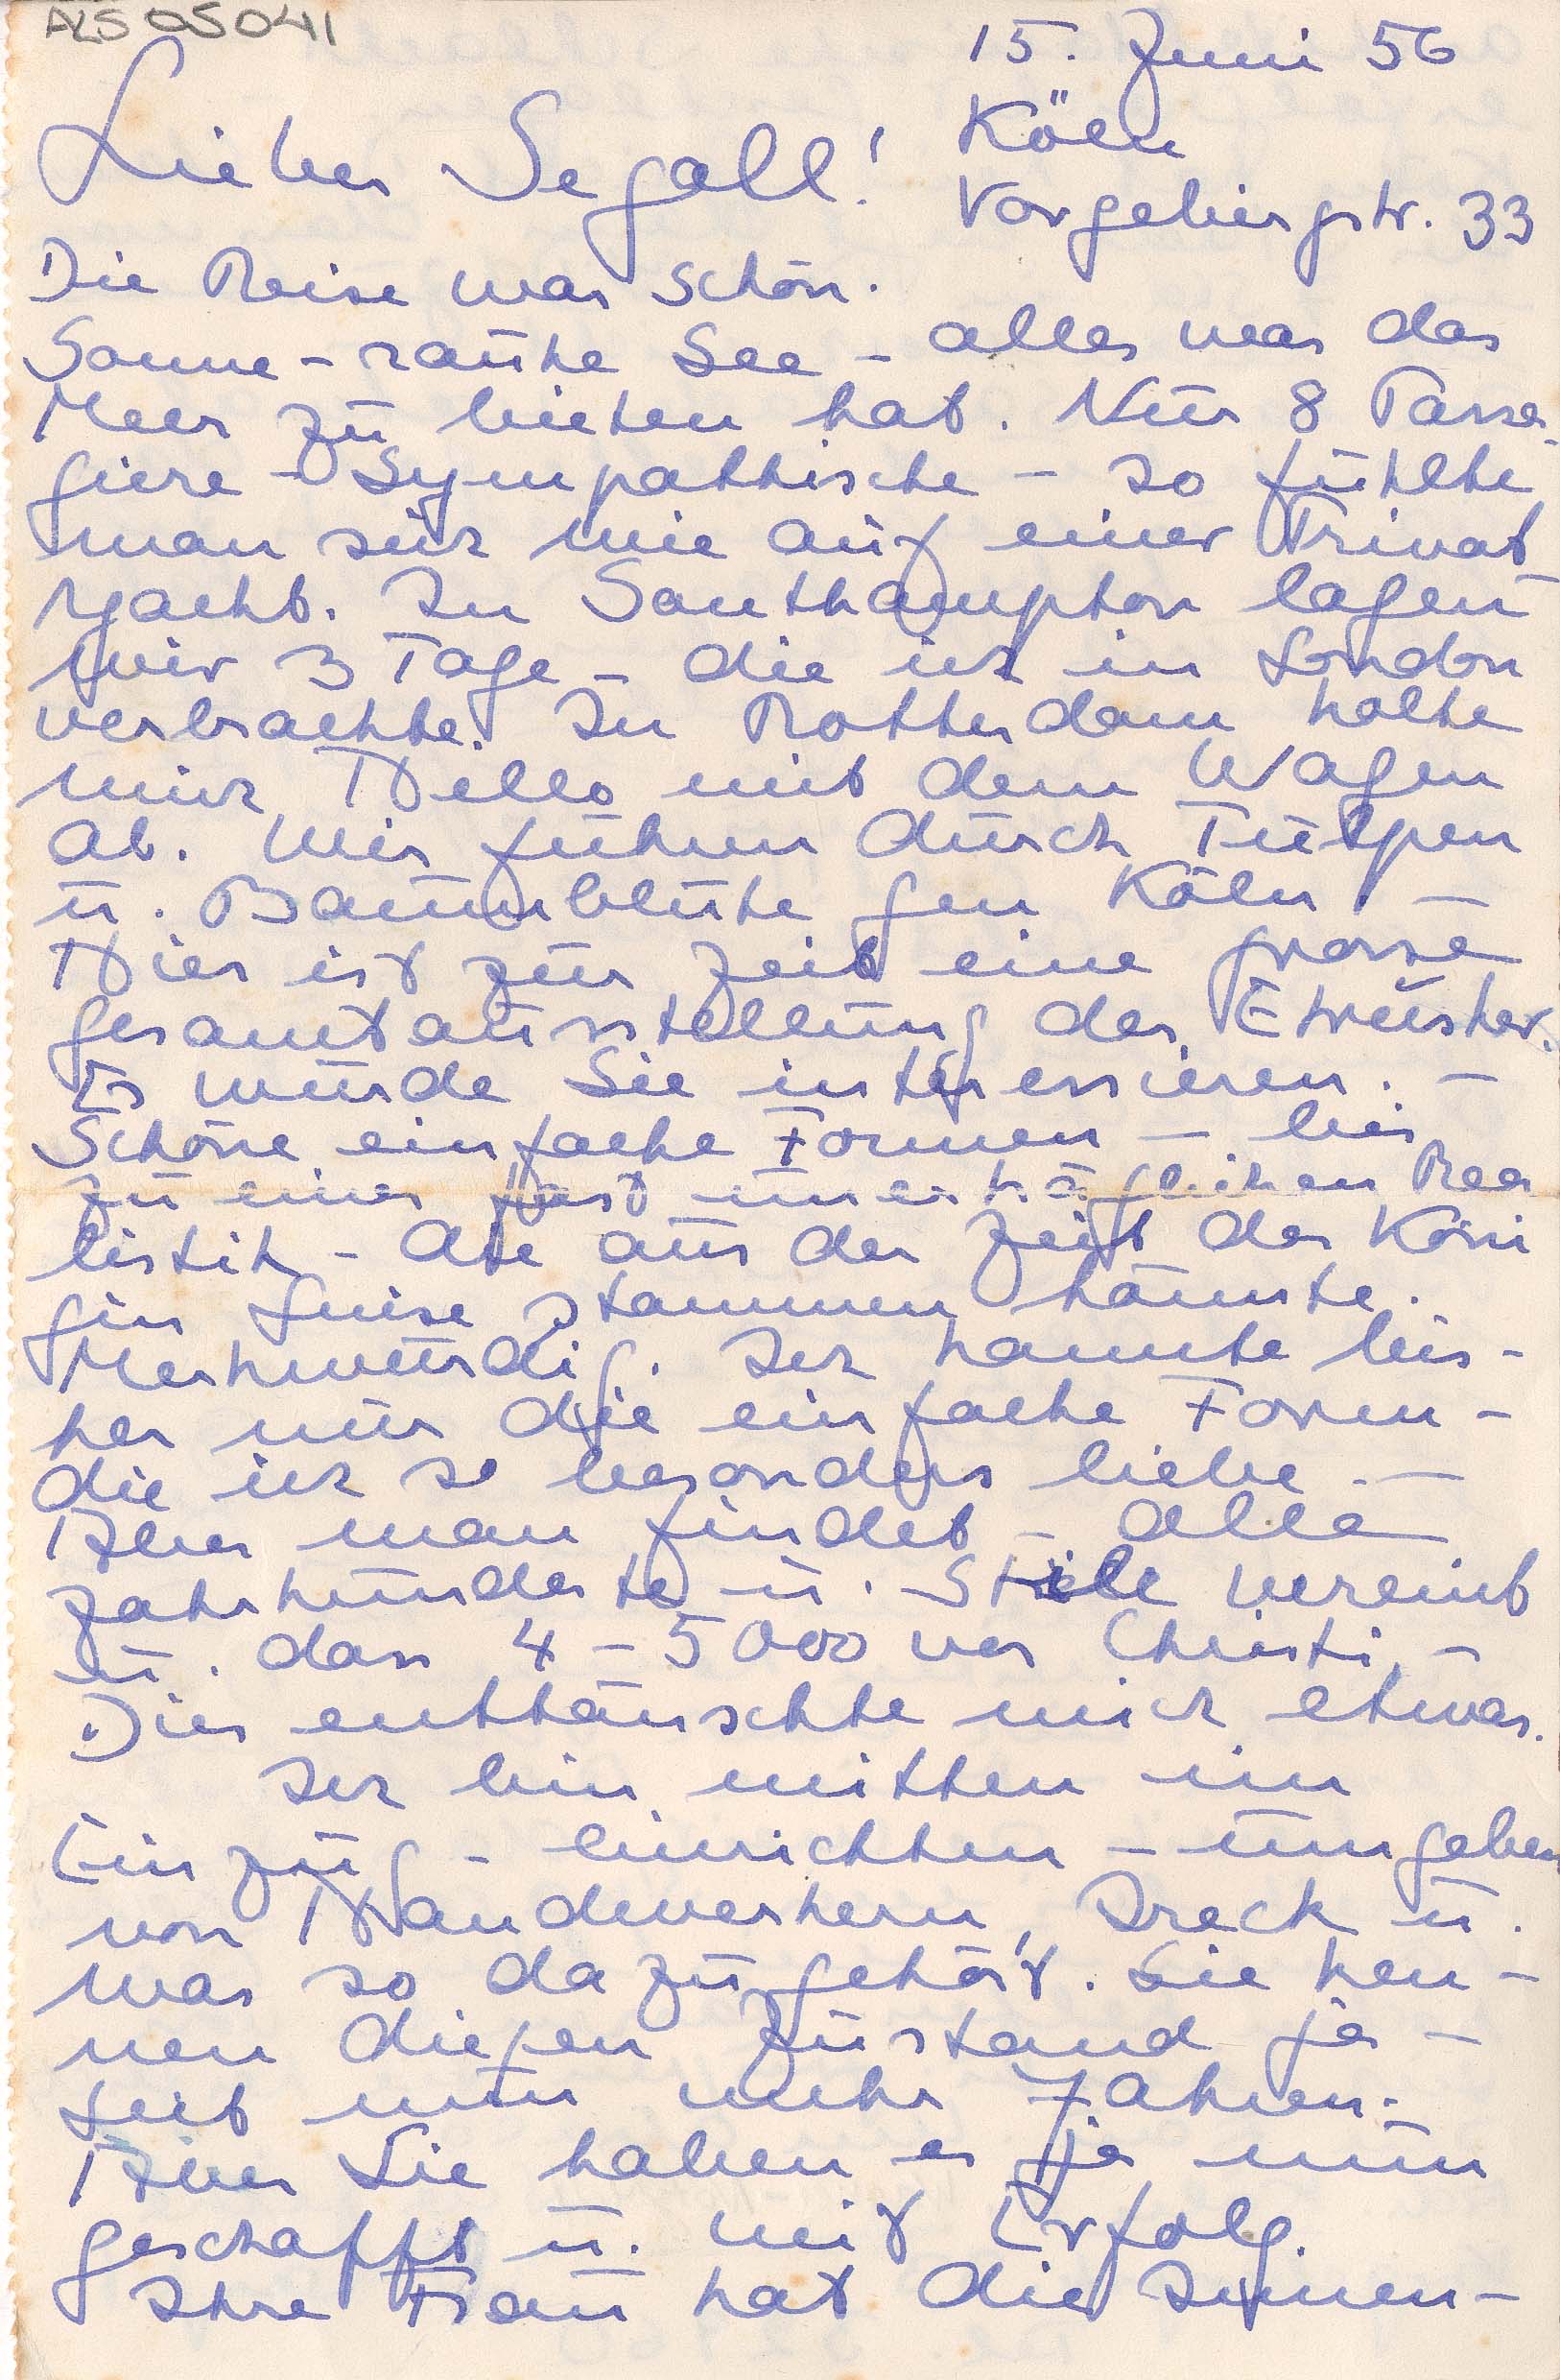 ALS 05041
15. Juni 56
Köln
Lieber Segall!
Vorgebirgstr. 33
Die Reise war schön.
Sonne - rauhe See - alles was das
Meer zu bieten hat. Nur 8 Passa-
giere - Sympathische - so fühlte
man sich wie auf einer Privat
yacht. In Southampton lagen
wir 3 Tage - die ich in London
verbrachte. In Rotterdam holte
mich Hello mit dem Wagen
ab. Wir fuhren durch Tulpen
u. Baumblüte gen Köln! -
Hier ist zur Zeit eine grosse
Gesamtausstellung der Etrusker.
Es würde Sie interessieren. -
Schöne einfache Formen - bis
zu einer fast unerträglichen Rea
listik - die aus der Zeit der Köni
gin Luise stammen könnte.
Merkwürdig. Ich kannte bis-
her nur die einfache Form -
die ich so besonders liebe. -
Aber man findet - alle
Jahrhunderte u. Stile vereint
u. das 4 - 5000 vor Christi. -
Dies enttäuschte mich etwas.
Ich bin mitten im
Einzug - einrichten - umgeben
von Handwerkern, Dreck u.
was so dazugehört. Sie ken-
nen diesen Zustand ja -
seit nun mehr Jahren.
Aber Sie haben es ja nun
geschafft u. mit Erfolg.
Ihre Frau hat die Innen-